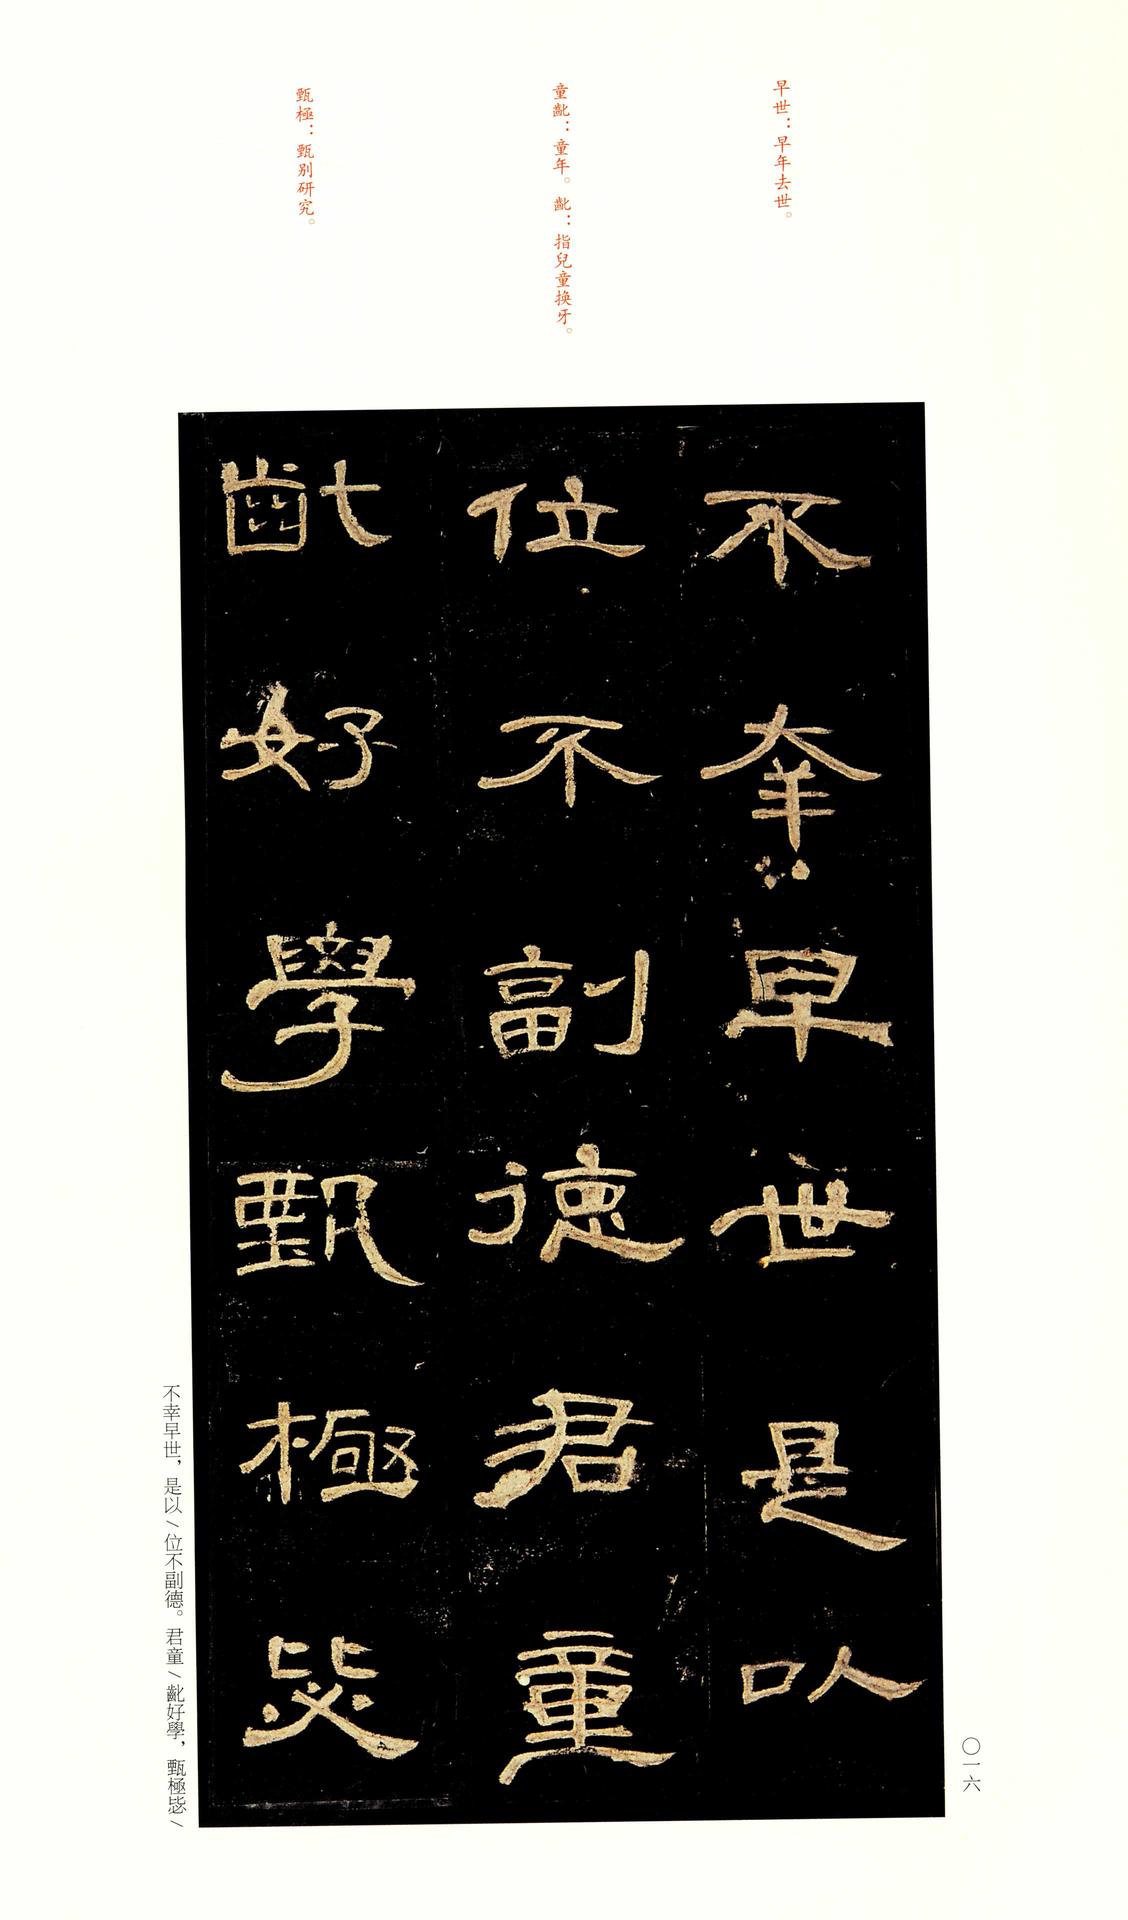 早世：早年去世。
童齔：童年。齔：指兒童換牙。
甄極：甄別研究。
不幸早世是以
位不副德君童
齔好學甄極毖
不幸早世，是以／位不副德。君童／齔好學，甄極毖／
〇一六